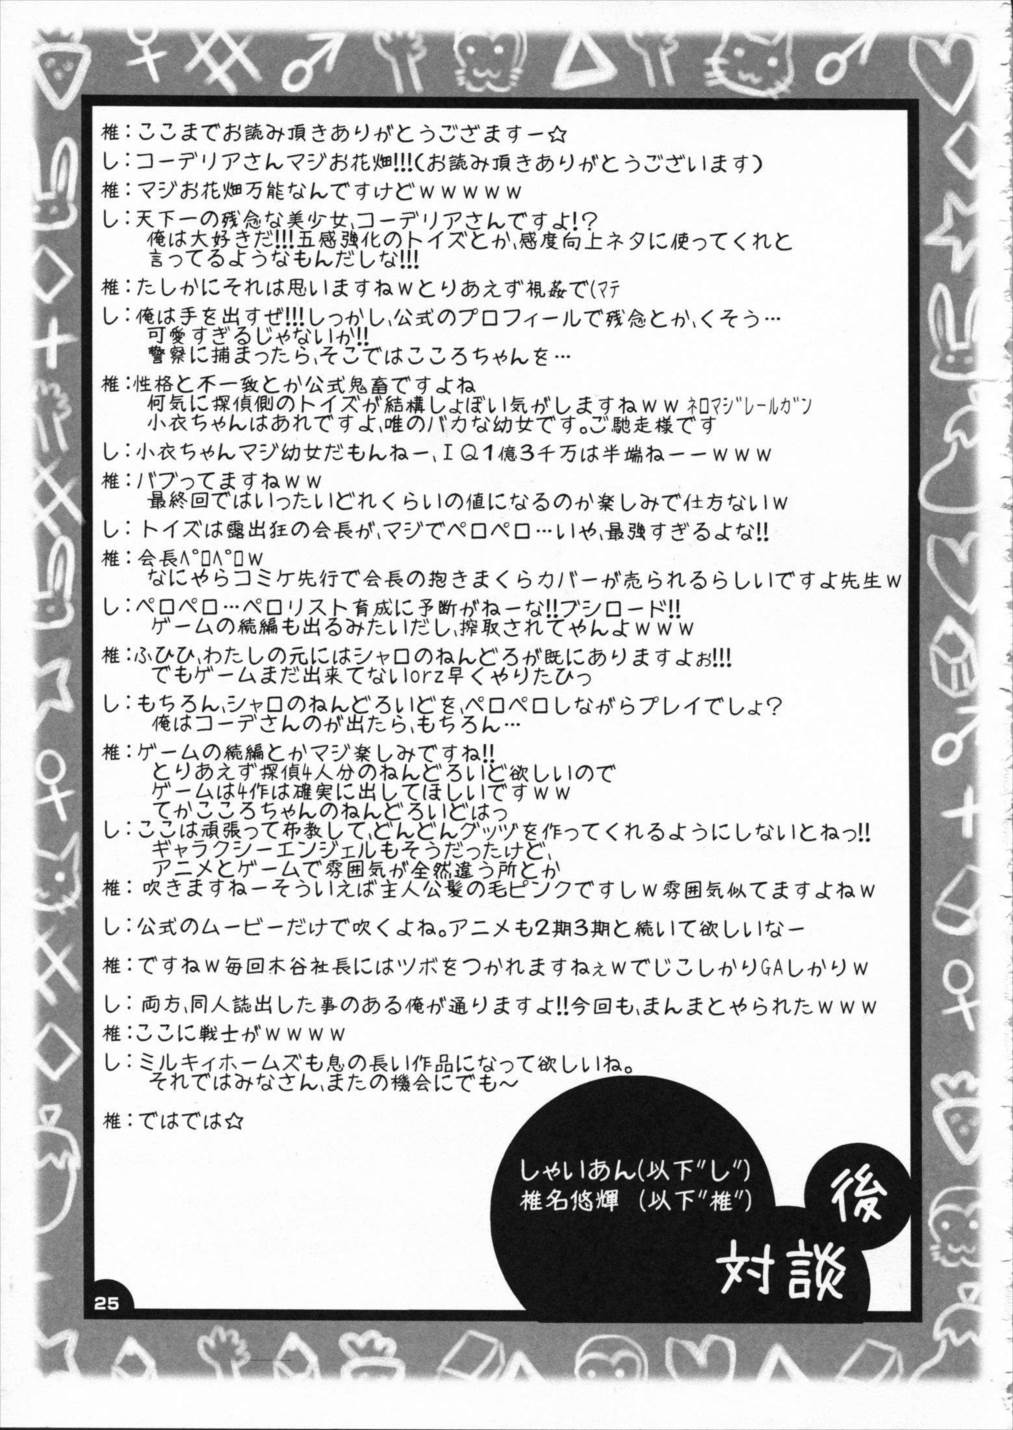 椎：ここまでお読み頂きありがとうござますー☆
し：コーデリアさんマジお花畑!!!(お読み頂きありがとうございます)
椎：マジお花畑万能なんですけどｗｗｗｗｗ
し：天下一の残念な美少女、コーデリアさんですよ!？
俺は大好きだ!!!五感強化のトイズとか、感度向上ネタに使ってくれと
言ってるようなもんだしな!!!
椎：たしかにそれは思いますねｗとりあえず視姦で(ﾏﾃ
し：俺は手を出すぜ!!!しっかし、公式のプロフィールで残念とか、くそう…
可愛すぎるじゃないか!!
警察に捕まったら、そこではこころちゃんを…
椎：性格と不一致とか公式鬼畜ですよね
何気に探偵側のトイズが結構しょぼい気がしますねｗｗ ﾈﾛﾏｼﾞﾚｰﾙｶﾞﾝ
小衣ちゃんはあれですよ、唯のバカな幼女です。ご馳走様です
し：小衣ちゃんマジ幼女だもんねー、ＩＱ１億３千万は半端ねーーｗｗｗ
椎：バブってますねｗｗ
最終回ではいったいどれくらいの値になるのか楽しみで仕方ないｗ
し：トイズは露出狂の会長が、マジでペロペロ…いや、最強すぎるよな!!
椎：会長ﾍﾟﾛﾍﾟﾛｗ
なにやらコミケ先行で会長の抱きまくらカバーが売られるらしいですよ先生ｗ
し：ペロペロ…ペロリスト育成に予断がねーな!!ブシロード!!
ゲームの続編も出るみたいだし、搾取されてやんよｗｗｗ
椎：ふひひ、わたしの元にはシャロのねんどろが既にありますよぉ!!!
でもゲームまだ出来てないorz早くやりたひっ
し：もちろん、シャロのねんどろいどを、ペロペロしながらプレイでしょ？
俺はコーデさんのが出たら、もちろん…
椎：ゲームの続編とかマジ楽しみですね!!
とりあえず探偵4人分のねんどろいど欲しいので
ゲームは4作は確実に出してほしいですｗｗ
てかこころちゃんのねんどろいどはっ
し：ここは頑張って布教して、どんどんグッヅを作ってくれるようにしないとねっ!!
ギャラクシーエンジェルもそうだったけど、
アニメとゲームで雰囲気が全然違う所とか
椎：吹きますねーそういえば主人公髪の毛ピンクですしｗ雰囲気似てますよねｗ
し：公式のムービーだけで吹くよね。アニメも２期３期と続いて欲しいなー
椎：ですねｗ毎回木谷社長にはツボをつかれますねぇｗでじこしかりGAしかりｗ
し：両方、同人誌出した事のある俺が通りますよ!!今回も、まんまとやられたｗｗｗ
椎：ここに戦士がｗｗｗｗ
し：ミルキィホームズも息の長い作品になって欲しいね。
それではみなさん、またの機会にでも～
椎：ではでは☆
しゃいあん(以下"し")
椎名悠輝 (以下"椎")
後
対談
25